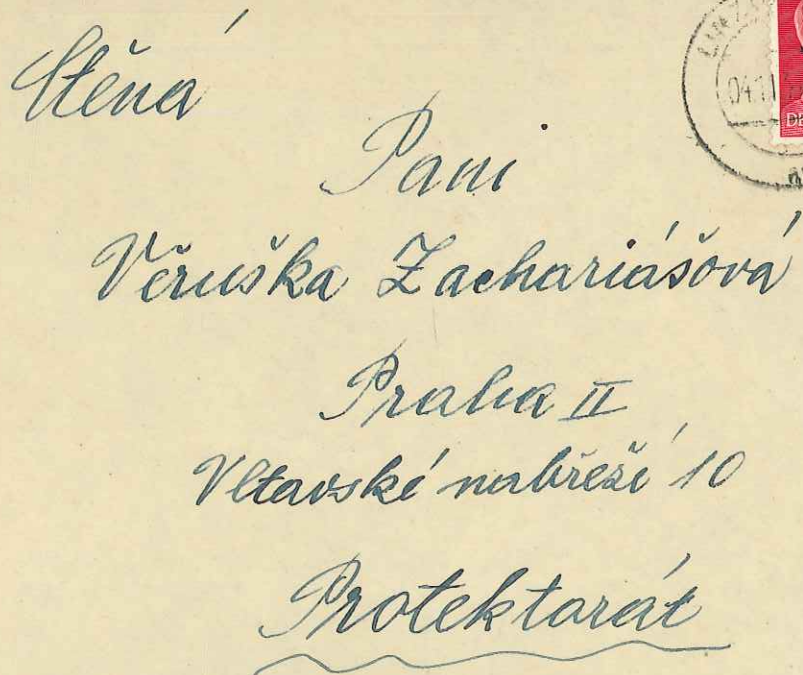 Ctěná
Paní
Věruška Zachariášová
Praha II
Vltavské nabřeží 10
Protektorát